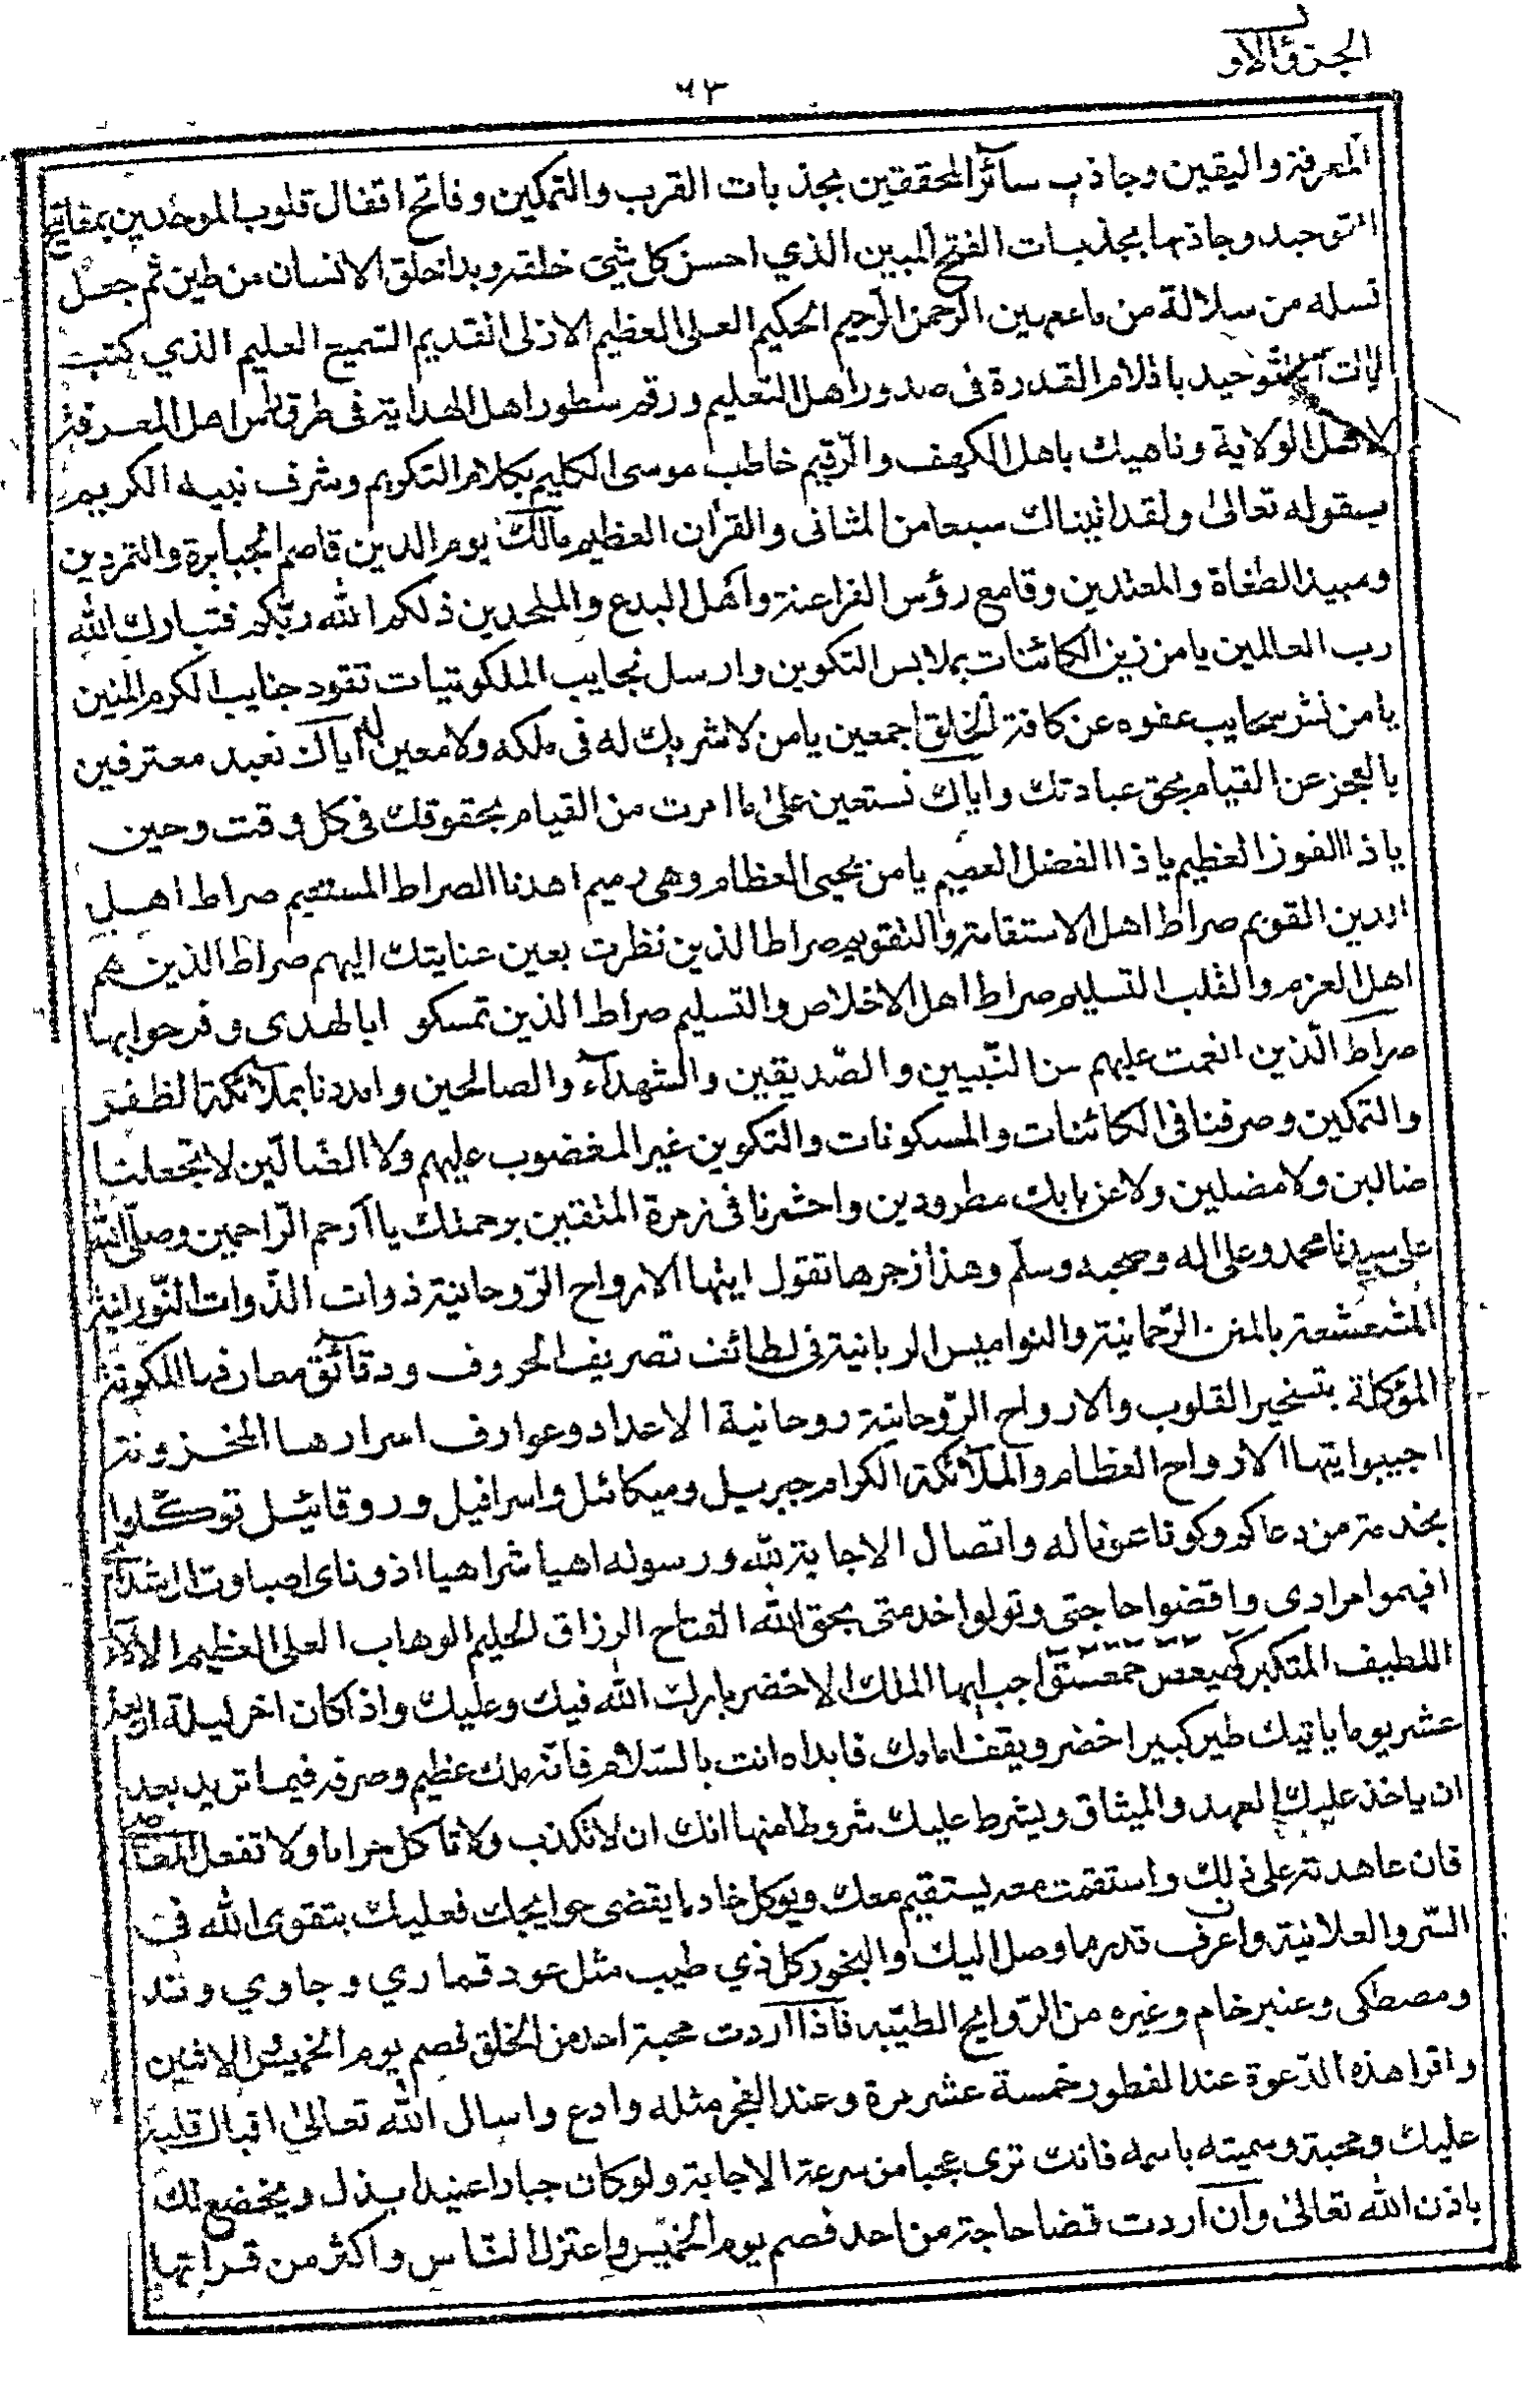 الجزؤالاول
٦٣
المعرفة واليقين وجاذب سآئر المحققين بجذبات القرب والتمكين وفاتح اقفال قلوب الموحدين بمفاتيح
التوحيد وجاذبها بجذبات الفتح المبين الذي احسن كل شئ خلقه وبدا خلق الانسان من طين ثم جعل
نسله من سلالة من ماء مهين الرحمن الرحيم الحكيم العلى العظيم الازلى القديم السميع العليم الذي كتب
التوحيد باقلام القدرة فى صدور اهل التعليم ورقم سطور اهل الهداية فى طرق اهل المعرفة
الولاية وناهيك باهل الكهف والرقيم خاطب موسى الكليم بكلام التكريم وشرف نبيه الكريم
بقوله تعالى ولقد اتيناك سبعا من المثانى والقرأن العظيم مالك يوم الدين قاصم الجبابرة والتمردين
ومبيد الطغاة والمعتدين وقامع رؤس الفراعنة واهل البدع والملحدين ذلكم الله ربكم فتبارك الله
رب العالمين يا من زين الكائنات بملابس التكوين وارسل نجايب الملكوتيات تقود جنايب الكرم المنين
يا من نشر سحايب عفوه عن كافة الخلق اجمعين يا من لا شريك له فى ملكه ولا معين له اياك نعبد معترفين
بالعجز عن القيام بحق عبادتك واياك نستعين على ما امرت من القيام بحقوقك فى كل وقت وحين
يا ذا الفوز العظيم يا ذا الفضل العميم يا من يحيى العظام وهى رميم اهدنا الصراط المستقيم صراط اهل
الدين القويم صراط اهل الاستقامة والتقويم صراط الذين نظرت بعين عنايتك اليهم صراط الذين هم
اهل العزم والقلب التسليم صراط اهل الاخلاص والتسليم صراط الذين تمسكو ابالهدى وفرحوا بها
صراط الذين انعمت عليهم من النبيين والصديقين والشهدآء والصالحين وامددنا بملآئكة الظفر
والتمكين وصرفنا فى الكائنات والمسكونات والتكوين غير المغضوب عليهم ولا الضالين لا تجعلنا
ضالين ولا مضلين ولا عن بابك مطرودين واحشرنا فى زمرة المتقين برحمتك يا ارحم الراحمين وصلى الله
على سيدنا محمد وعلى اله وصحبه وسلم وهذا زجرها تقول ايتها الارواح الروحانية ذوات الذوات النورانية
المشعشعة بالمنن الرحمانية والنواميس الربانية فى لطائف تصريف الحروف ودقائق معارفها المكونة
المؤكلة بتسخير القلوب والارواح الروحانية روحانية الاعداد وعوارف اسرارها المخزونة
اجيبوا ايتها الارواح العظام والملآئكة الكرام جبريل وميكائل واسرافيل وروقائيل توكلوا
بخدمة من دعاكم وكونا عونا له واتصال الاجابة لله ورسوله اهيا شراهيا اذوناى اصباوت ال شداى
افهموا مرادى واقضوا حاجتى وتولوا خدمتى بحق الله الفتاح الرزاق الحليم الوهاب العلى العظيم الالآء
اللطيف المتكبر كهيعص حمعسق اجب ايها الملك الاخضر بارك الله فيك وعليك واذا كان اخر ليلة اربعة
عشر يوما ياتيك طير كبير اخضر ويقف امامك فابداه انت بالسلام فانه ملك عظيم وصرفه فيما تريد بعد
ان ياخذ عليك العهد والميثاق ويشرط عليك شروطا منها انك ان لا تكذب ولا تاكل حراما ولا تفعل المعاصى
فان عاهدته على ذلك واستقمت معه يستقيم معك ويوكل خادما يقضى حوايجك فعليك بتقوى الله فى
السر والعلانية واعرف قدر ما وصل اليك والبخور كل ذي طيب مثل عود قماري وجاوي وند
ومصطكى وعنبر خام وغيره من الروايح الطيبه فاذا اردت محبة احد من الخلق فصم يوم الخميس والاثنين
واقرا هذه الدعوة عند الفطور خمسة عشر مرة وعند الفجر مثله وادع واسال الله تعالى اقبال قلبه
عليك ومحبة وسميته باسمه فانك ترى عجبا من سرعة الاجابة ولو كان جبارا عنيدا يذل ويخضع لك
باذن الله تعالى وان اردت قضا حاجة من احد فصم يوم الخميس واعتزل الناس واكثر من قراتها